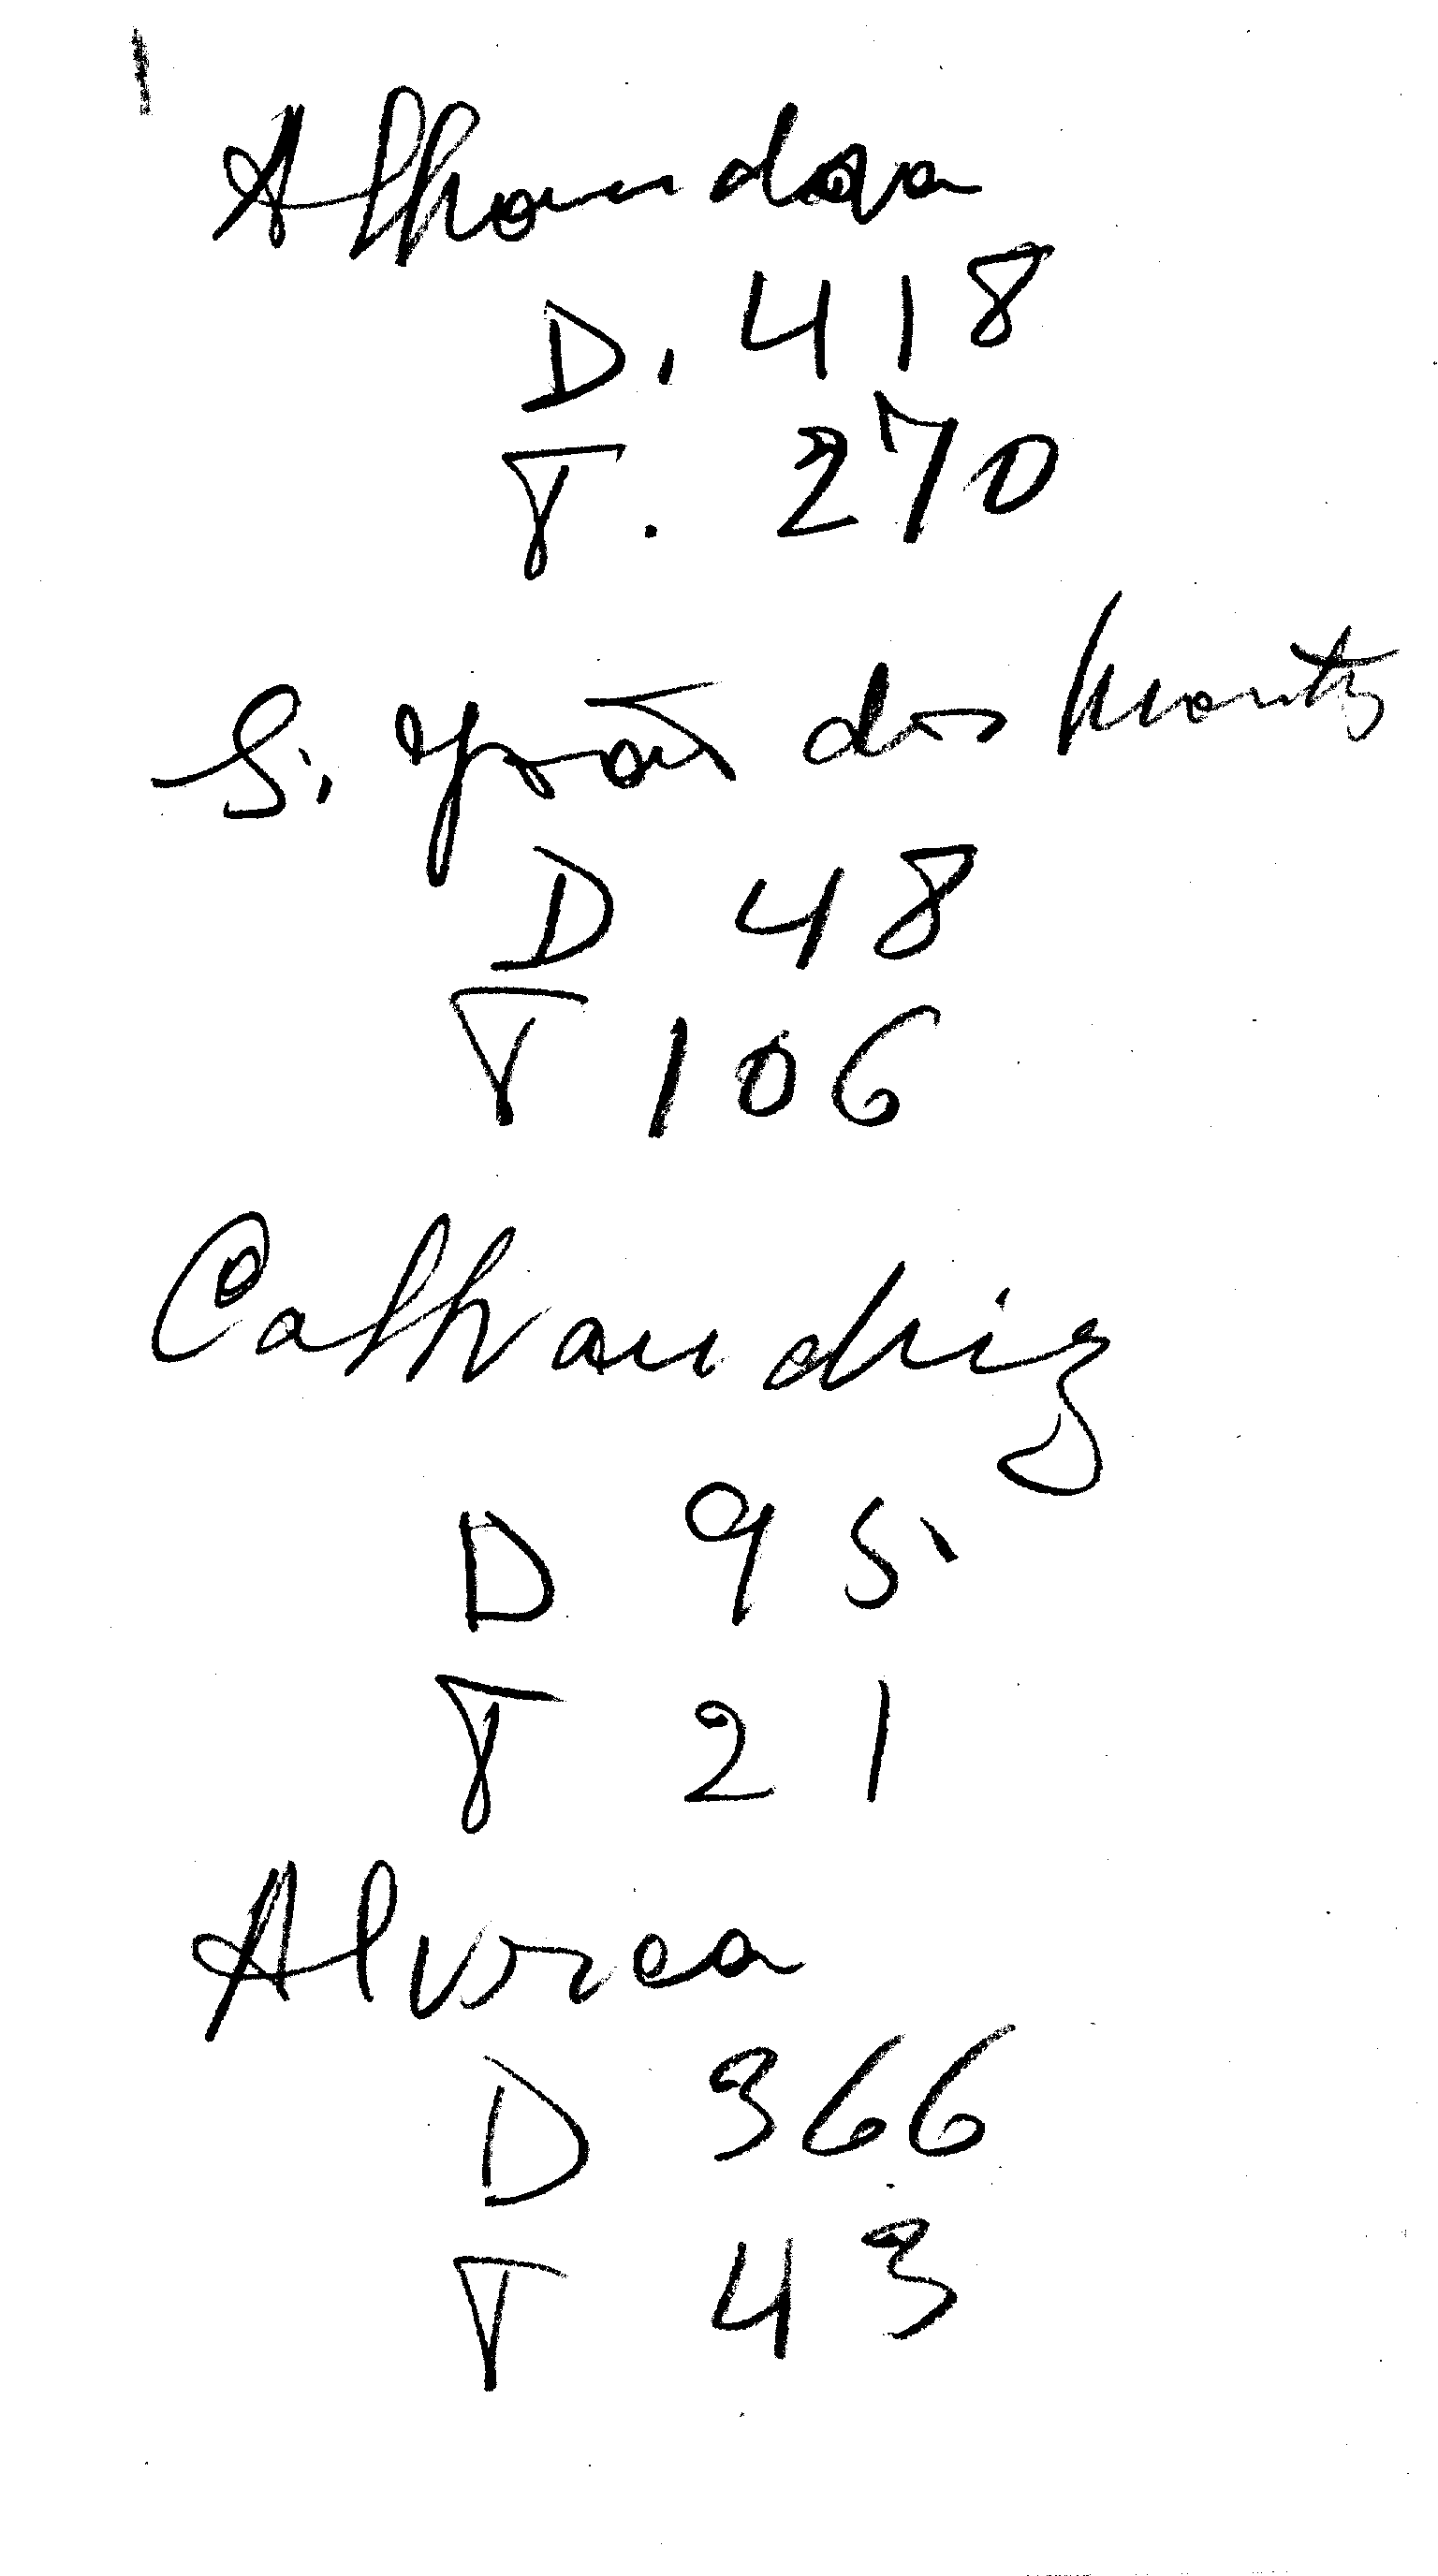 Alhandra
D. 418
T. 270
S. João dos Montes
D 48
T 106
Calhandriz
D 95
T 21
Alverca
D 366
T 43